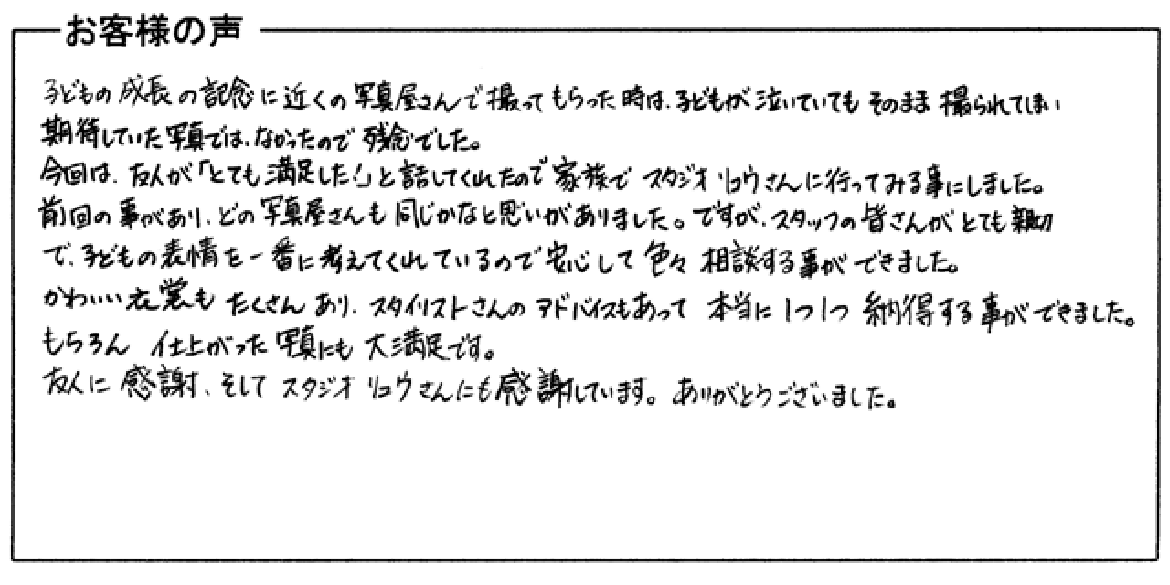 お客様の声
子どもの成長の記念に近くの写真屋さんで撮ってもらった時は、子どもが泣いていてもそのまま撮られてしまい
期待していた写真では、なかったので残念でした。
今回は、友人が「とても満足した!」と話してくれたので家族でスタジオリュウさんに行ってみる事にしました。
前回の事があり、どの写真屋さんも同じかなと思いがありました。ですが、スタッフの皆さんがとても親切
で、子どもの表情を一番に考えてくれているので安心して色々相談する事ができました。
かわいい衣裳もたくさんあり、スタイリストさんのアドバイスもあって本当に1つ1つ納得する事ができました。
もちろん仕上がった写真にも大満足です。
友人に感謝、そしてスタジオリュウさんにも感謝しています。ありがとうございました。